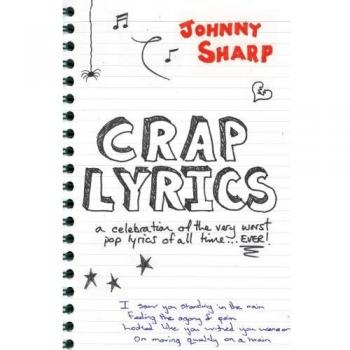 JOHNNY
SHARP
CRAP
LYRICS
a celebration of the very worst
pop lyrics of all time... EVER!
I saw you standing in the rain
Feeling the agony & pain
Looked like you wished you were on
On moving quickly on a train